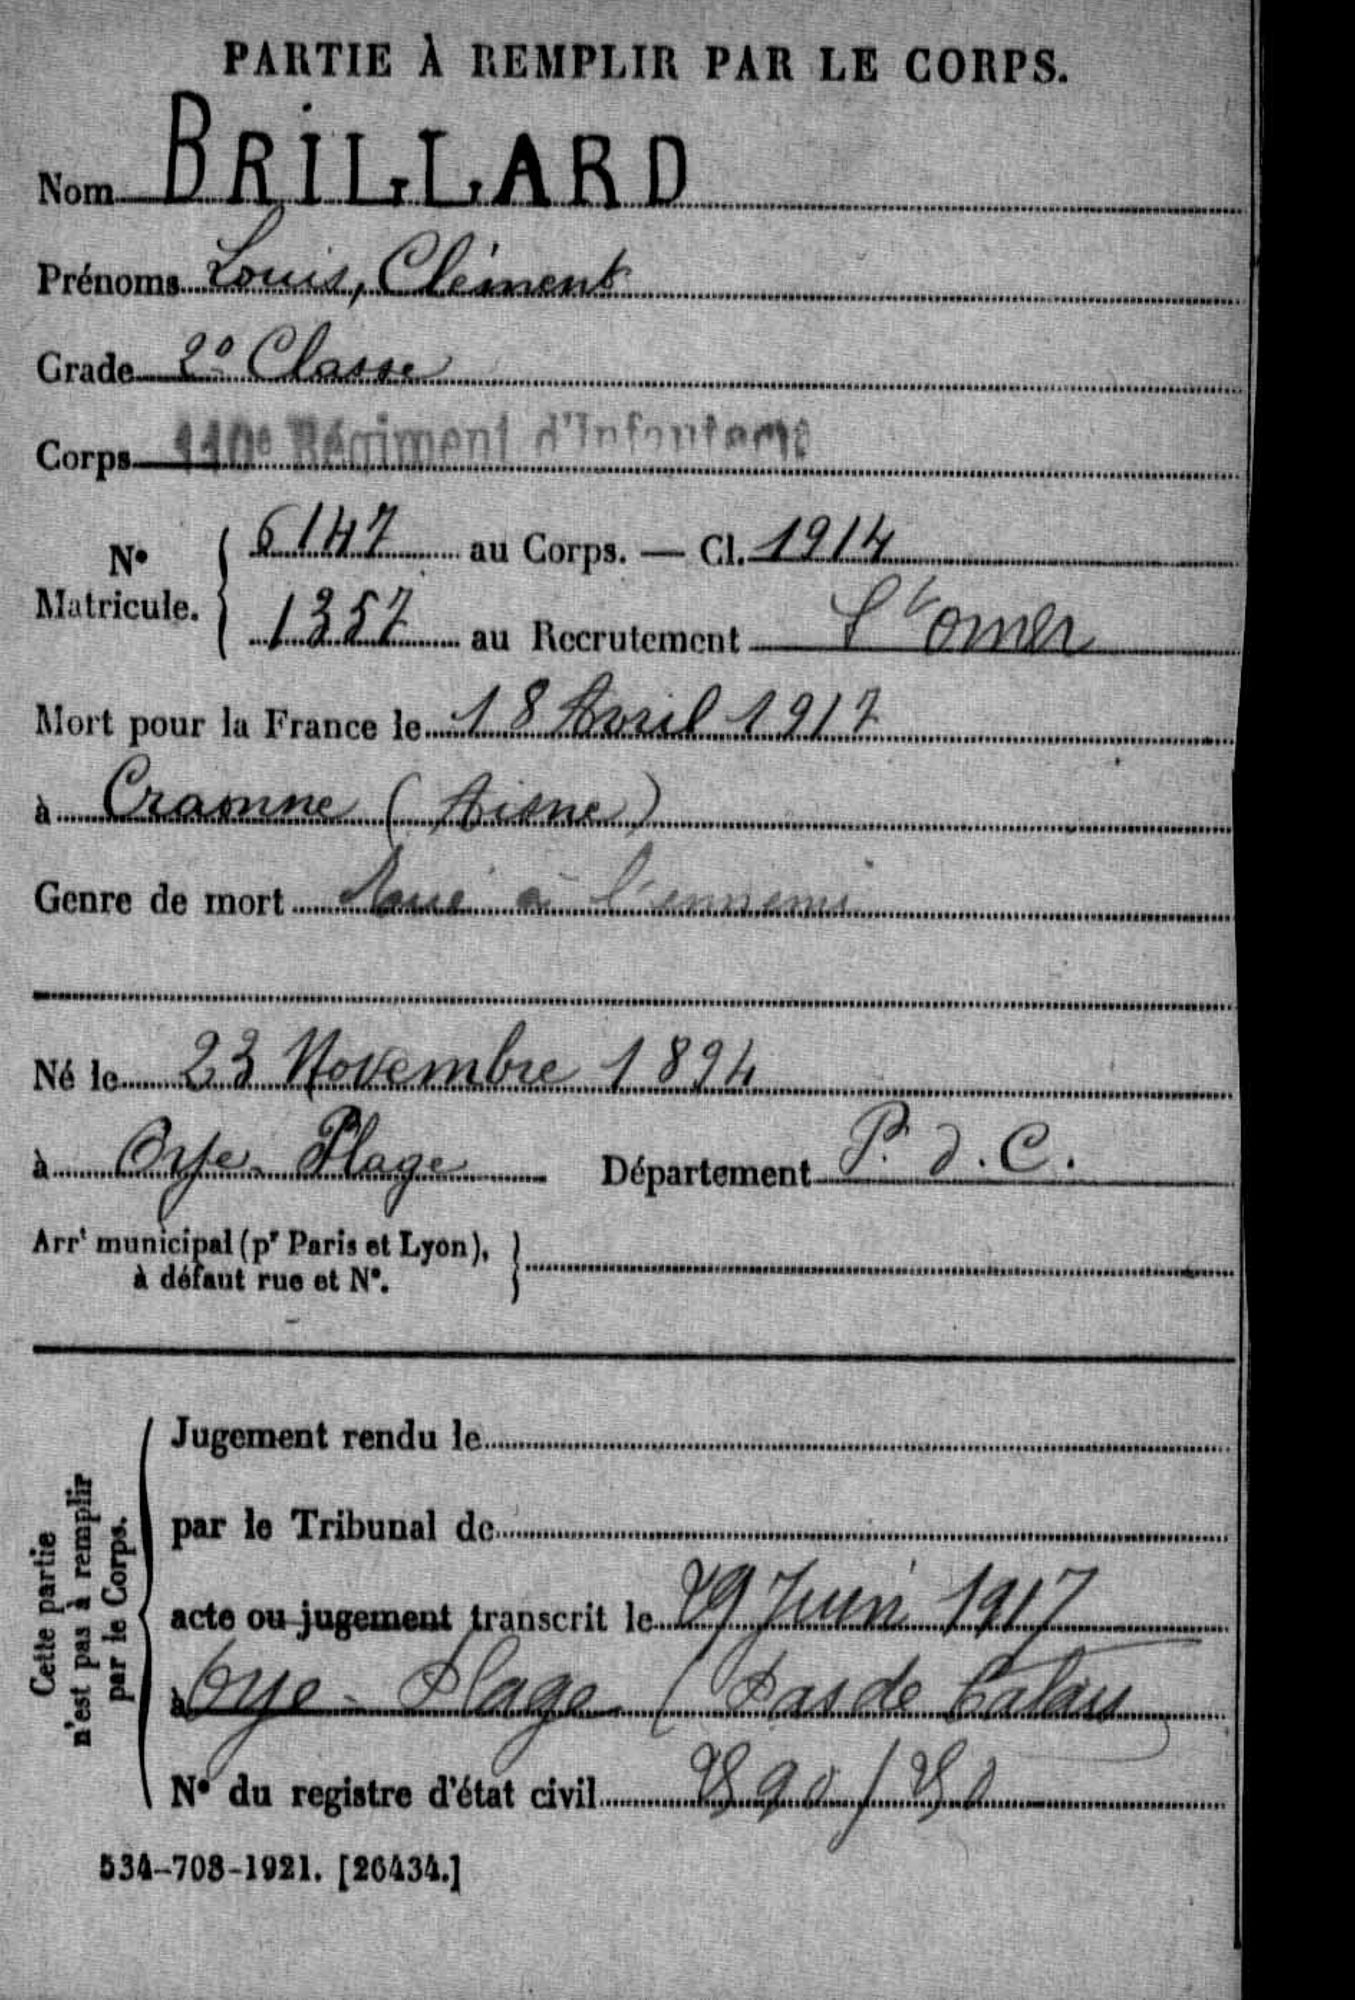 PARTIE À REMPLIR PAR LE CORPS.
Nom BRILLARD
Prénoms Louis, Clément
Grade 2e Classe
Corps 110e Régiment d'Infanterie
N° Matricule. 6147 au Corps. — Cl. 1914
1357 au Recrutement St Omer
Mort pour la France le 18 Avril 1917
à Craonne (Aisne)
Genre de mort Tué à l'ennemi
Né le 23 Novembre 1894
à Oye-Plage Département P. d. C.
Arrt municipal (pr Paris et Lyon),
à défaut rue et N°.
Cette partie
n'est pas à remplir
par le Corps.
Jugement rendu le
par le Tribunal de
acte ou jugement transcrit le 29 Juin 1917
à Oye-Plage (Pas de Calais
N° du registre d'état civil
534-708-1921. [26434.]